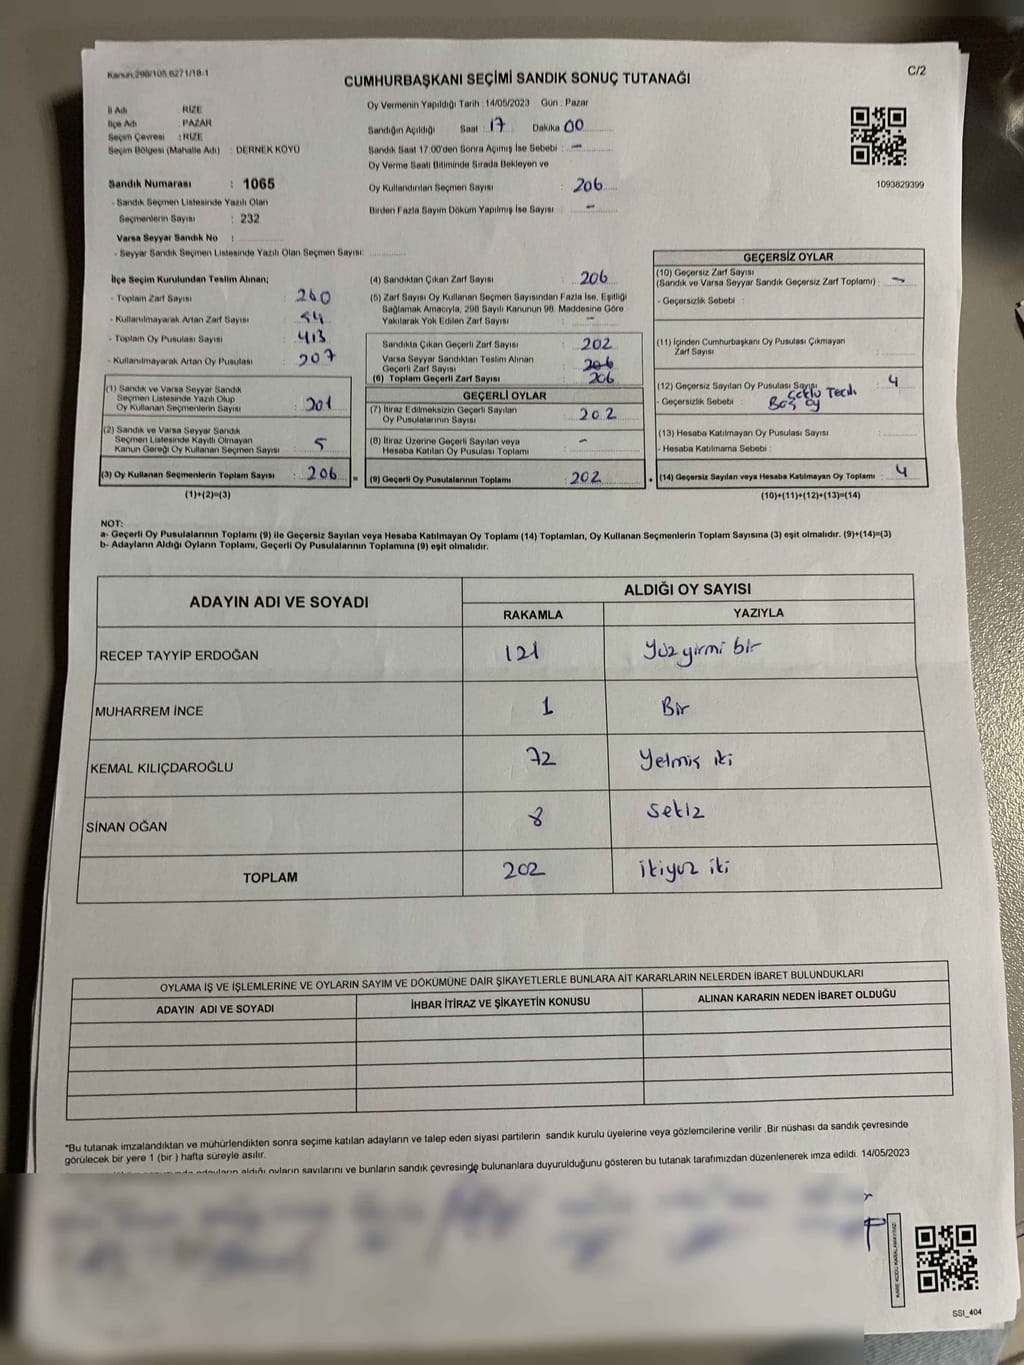 Kanun:298/105,6271/18-1
C/2
CUMHURBAŞKANI SEÇİMİ SANDIK SONUÇ TUTANAĞI
İl Adı : RİZE
İlçe Adı : PAZAR
Seçim Çevresi : RİZE
Seçim Bölgesi (Mahalle Adı) : DERNEK KÖYÜ
Oy Vermenin Yapıldığı Tarih : 14/05/2023 Gün : Pazar
Sandığın Açıldığı Saat : 17 Dakika 00
Sandık Saat 17:00'den Sonra Açımış İse Sebebi : -
Oy Verme Saati Bitiminde Sırada Bekleyen ve
Oy Kullandırılan Seçmen Sayısı : 206
Birden Fazla Sayım Döküm Yapılmış İse Sayısı : -
1093829399
Sandık Numarası : 1065
- Sandık Seçmen Listesinde Yazılı Olan
Seçmenlerin Sayısı : 232
Varsa Seyyar Sandık No :
- Seyyar Sandık Seçmen Listesinde Yazılı Olan Seçmen Sayısı:
İlçe Seçim Kurulundan Teslim Alınan;
- Toplam Zarf Sayısı : 260
- Kullanılmayarak Artan Zarf Sayısı : 54
- Toplam Oy Pusulası Sayısı : 413
- Kullanılmayarak Artan Oy Pusulası : 207
(1) Sandık ve Varsa Seyyar Sandık
Seçmen Listesinde Yazılı Olup
Oy Kullanan Seçmenlerin Sayısı : 201
(2) Sandık ve Varsa Seyyar Sandık
Seçmen Listesinde Kayıtlı Olmayan
Kanun Gereği Oy Kullanan Seçmen Sayısı : 5
(3) Oy Kullanan Seçmenlerin Toplam Sayısı : 206
(1)+(2)=(3)
(4) Sandıktan Çıkan Zarf Sayısı : 206
(5) Zarf Sayısı Oy Kullanan Seçmen Sayısından Fazla İse, Eşitliği
Sağlamak Amacıyla, 298 Sayılı Kanunun 98. Maddesine Göre
Yakılarak Yok Edilen Zarf Sayısı : -
Sandıkta Çıkan Geçerli Zarf Sayısı : 202
Varsa Seyyar Sandıktan Teslim Alınan
Geçerli Zarf Sayısı : 206
(6) Toplam Geçerli Zarf Sayısı : 206
GEÇERLİ OYLAR
(7) İtiraz Edilmeksizin Geçerli Sayılan
Oy Pusulalarının Sayısı : 202
(8) İtiraz Üzerine Geçerli Sayılan veya
Hesaba Katılan Oy Pusulası Toplamı : -
= (9) Geçerli Oy Pusulalarının Toplamı : 202 +
GEÇERSİZ OYLAR
(10) Geçersiz Zarf Sayısı
(Sandık ve Varsa Seyyar Sandık Geçersiz Zarf Toplamı) : -
- Geçersizlik Sebebi :
(11) İçinden Cumhurbaşkanı Oy Pusulası Çıkmayan
Zarf Sayısı :
(12) Geçersiz Sayılan Oy Pusulası Sayısı : 4
- Geçersizlik Sebebi : Boş oy
(13) Hesaba Katılmayan Oy Pusulası Sayısı :
- Hesaba Katılmama Sebebi :
(14) Geçersiz Sayılan veya Hesaba Katılmayan Oy Toplamı : 4
(10)+(11)+(12)+(13)=(14)
NOT:
a- Geçerli Oy Pusulalarının Toplamı (9) ile Geçersiz Sayılan veya Hesaba Katılmayan Oy Toplamı (14) Toplamları, Oy Kullanan Seçmenlerin Toplam Sayısına (3) eşit olmalıdır. (9)+(14)=(3)
b- Adayların Aldığı Oyların Toplamı, Geçerli Oy Pusulalarının Toplamına (9) eşit olmalıdır.
ADAYIN ADI VE SOYADI ALDIĞI OY SAYISI
RAKAMLA YAZIYLA
RECEP TAYYİP ERDOĞAN 121 Yüz yirmi bir
MUHARREM İNCE 1 Bir
KEMAL KILIÇDAROĞLU 72 Yetmiş iki
SİNAN OĞAN 8 sekiz
TOPLAM 202 ikiyüz iki
OYLAMA İŞ VE İŞLEMLERİNE VE OYLARIN SAYIM VE DÖKÜMÜNE DAİR ŞİKAYETLERLE BUNLARA AİT KARARLARIN NELERDEN İBARET BULUNDUKLARI
ADAYIN ADI VE SOYADI İHBAR İTİRAZ VE ŞİKAYETİN KONUSU ALINAN KARARIN NEDEN İBARET OLDUĞU
*Bu tutanak imzalandıktan ve mühürlendikten sonra seçime katılan adayların ve talep eden siyasi partilerin sandık kurulu üyelerine veya gözlemcilerine verilir .Bir nüshası da sandık çevresinde
görülecek bir yere 1 (bir ) hafta süreyle asılır.
adayların aldığı oyların sayılarını ve bunların sandık çevresinde bulunanlara duyurulduğunu gösteren bu tutanak tarafımızdan düzenlenerek imza edildi. 14/05/2023
KARE KODU KARALAMAYINIZ!
SSI_404